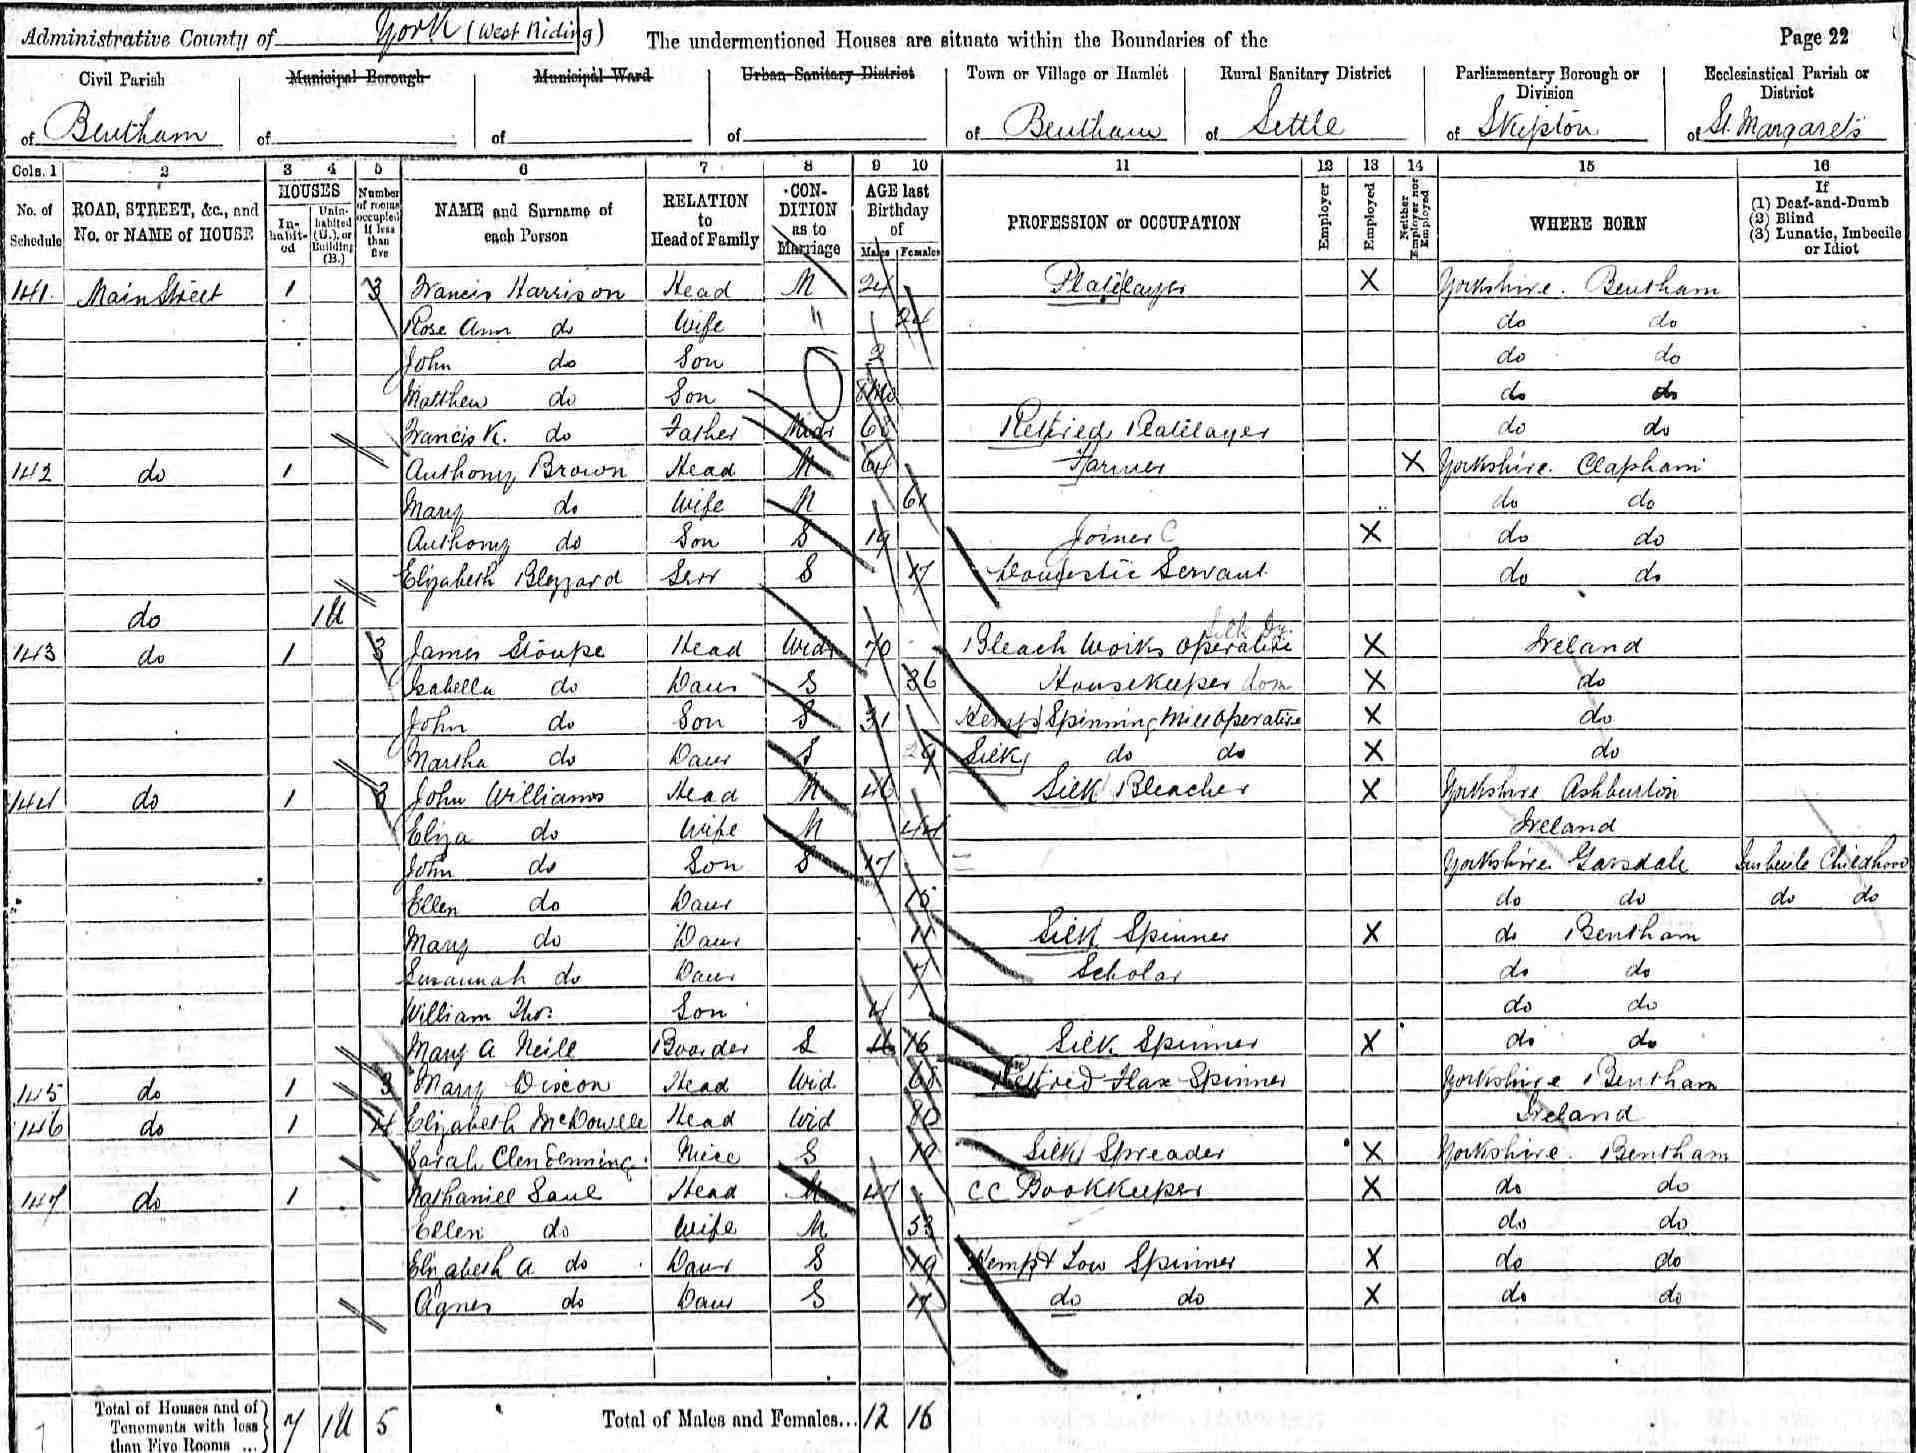 Administrative County of York (West Riding) The undermentioned Houses are situate within the Boundaries of the Page 22
Civil Parish Municipal Borough Municipal Ward Urban Sanitary District Town or Village or Hamlet Rural Sanitary District Parliamentary Borough or Division Ecclesiastical Parish or District
of Bentham of of of of Bentham of Settle of Skipton of St. Margaret's
Cols. 1 2 3 4 5 6 7 8 9 10 11 12 13 14 15 16
No. of Schedule ROAD, STREET, &c., and No. or NAME of HOUSE HOUSES In-habit-ed Unin-habited (U.), or Building (B.) Number of rooms occupied if less than five NAME and Surname of each Person RELATION to Head of Family CON-DITION as to Marriage AGE last Birthday of Males Females PROFESSION or OCCUPATION Employer Employed Neither Employer nor Employed WHERE BORN If (1) Deaf-and-Dumb (2) Blind (3) Lunatic, Imbecile or Idiot
141 Main Street 1 3 Francis Harrison Head M 24 Platelayer X Yorkshire. Bentham
Rose Ann do Wife " 24 do do
John do Son 2 do do
Matthew do Son do do
Francis K. do Father Widr Retired Platelayer do do
142 do 1 Anthony Brown Head M 64 Farmer X Yorkshire. Clapham
Mary do Wife M 61 do do
Anthony do Son S 19 Joiner C X do do
Elizabeth Blezzard Serv S 17 Domestic Servant do do
do 1 U
143 do 1 3 James Stoupe Head Widr 70 Bleach Works Operative X Ireland
Isabella do Daur S 36 Housekeeper dom X do
John do Son S 31 Hemp Spinning Mill Operative X do
Martha do Daur S 29 Silk do do X do
144 do 1 3 John Williams Head M 46 Silk Bleacher X Yorkshire Ashburton
Eliza do Wife M 44 Ireland
John do Son S 17 Yorkshire Garsdale Imbecile Childhood
Ellen do Daur 15 do do do do
Mary do Daur 11 Silk Spinner X do Bentham
Susannah do Daur 7 Scholar do do
William Thos. Son 4 do do
Mary A Neill Boarder S 16 16 Silk Spinner X do do
145 do 1 3 Mary Dixon Head Wid 68 Retired Flax Spinner Yorkshire Bentham
146 do 1 4 Elizabeth McDowell Head Wid Ireland
Sarah Clendenning Niece S 19 Silk Spreader X Yorkshire. Bentham
147 do 1 Nathaniel Saul Head M 47 CC Bookkeeper X do do
Ellen do Wife M 53 do do
Elizabeth A do Daur S 19 Hemp & Tow Spinner X do do
Agnes do Daur S 17 do do X do do
Total of Houses and of Tenements with less than Five Rooms ... 7 1U 5 Total of Males and Females... 12 16